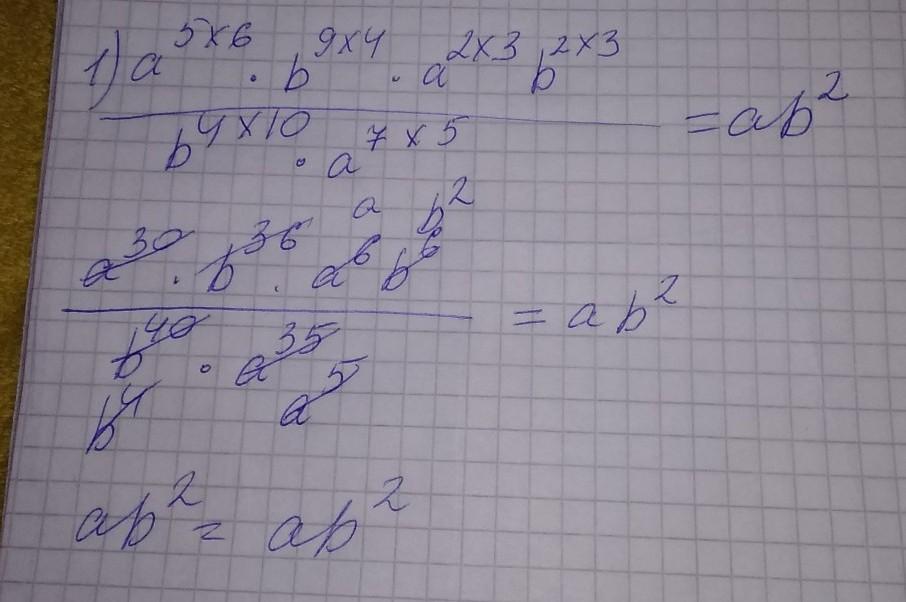 1) a^{5×6} · b^{9×4} · a^{2×3} b^{2×3}
b^{4×10} · a^{7×5}
= ab^2
a b^2
a^{30} · b^{36} · a^6 b^6
b^{40} · a^{35}
= ab^2
b^4 a^5
ab^2 = ab^2